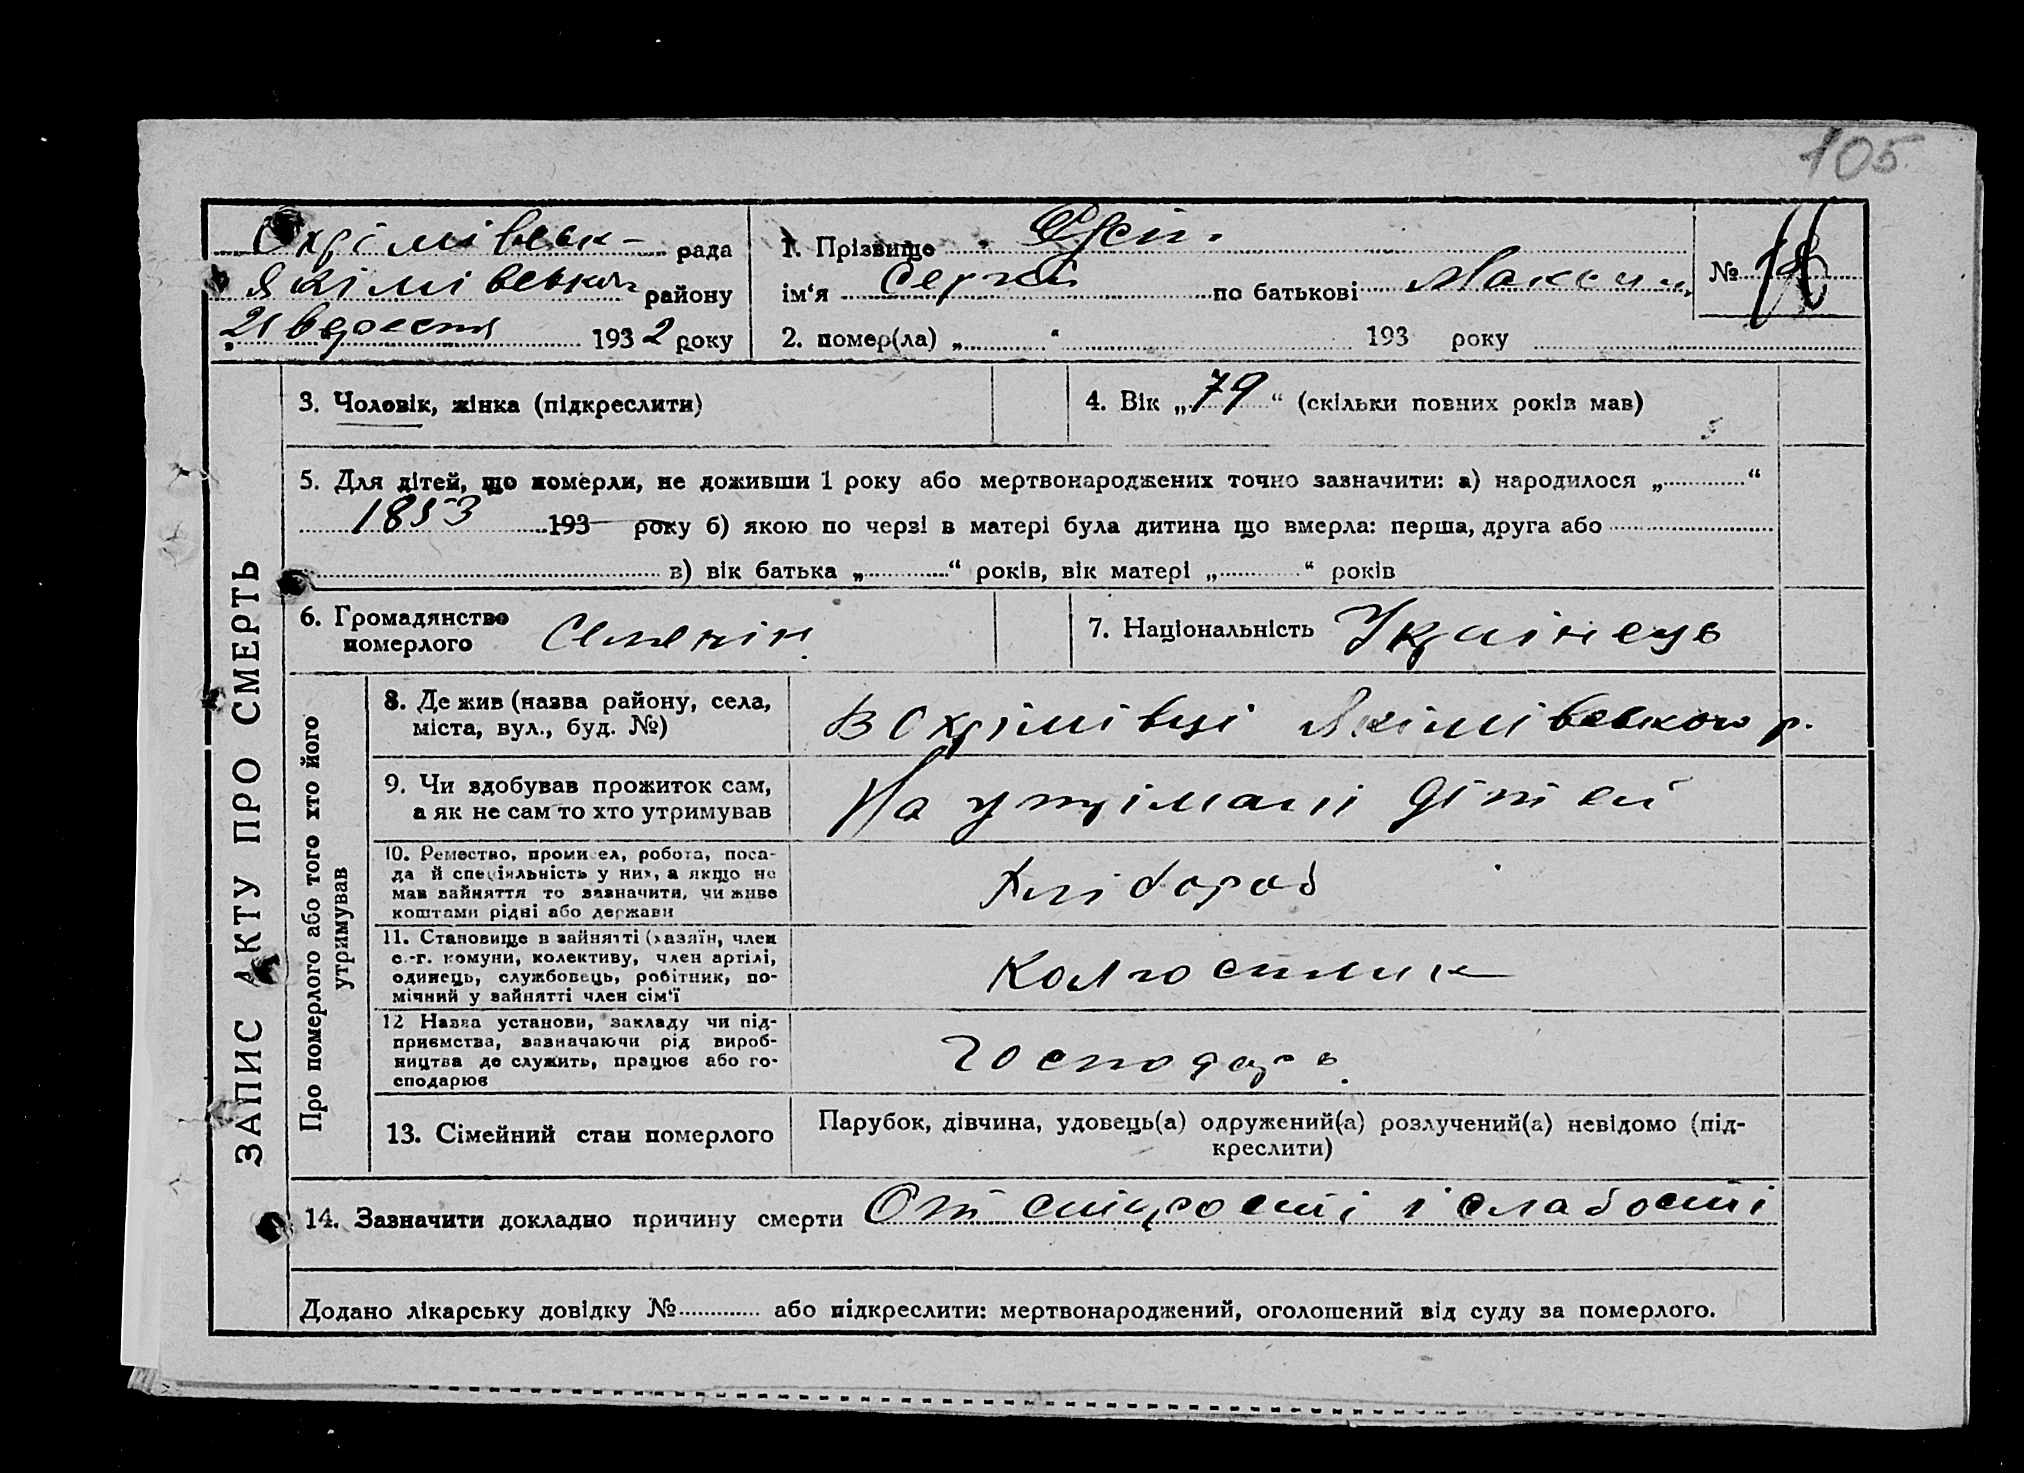 105
Охрімівськ- рада
Якімівськог району
„21 вересня 1932 року
1. Прізвище
ім‘я Сергій по батькові Максим.
2. помер(ла) „ “ 193 року
№
3. Чоловік, жінка (підкреслити)
4. Вік „79“ (скільки повних років мав)
5. Для дітей, що померли, не доживши 1 року або мертвонароджених точно зазначити: а) народилося „ “
1853 193 року б) якою по черзі в матері була дитина що вмерла: перша, друга або
в) вік батька „ “ років, вік матері „ “ років
6. Громадянство
померлого
7. Національність Українець
ЗАПИС АКТУ ПРО СМЕРТЬ
Про померлого або того хто його
утримував
8. Де жив (назва району, села,
міста, вул., буд. №)
В Охрімівці Якімівського р.
9. Чи здобував прожиток сам,
а як не сам то хто утримував
На утрімані дітей
10. Ремество, промисел, робота, поса-
да й спеціяльність у них, а якщо не
мав зайняття то зазначити, чи живе
коштами рідні або держави
Хлібороб
11. Становище в зайнятті (хазяїн, член
с.-г. комуни, колективу, член артілі,
одинець, службовець, робітник, по-
мічний у зайнятті член сім‘ї
Колгоспник
12 Назва установи, закладу чи під-
приємства, зазначаючи рід вироб-
ництва де служить, працює або го-
сподарює
Господарь.
13. Сімейний стан померлого
Парубок, дівчина, удовець(а) одружений(а) розлучений(а) невідомо (під-
креслити)
14. Зазначити докладно причину смерти От старості і слабості
Додано лікарську довідку № або підкреслити: мертвонароджений, оголошений від суду за померлого.